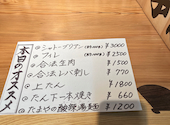 本日のオススメ
◎シャトーブリアン ¥3000
◎フィレ ¥2500
◎合法生肉 ¥1500
◎合法レバ刺し ¥770
◎上たん ¥1800
◎たん下一本焼き ¥660
◎たまやの ¥1200